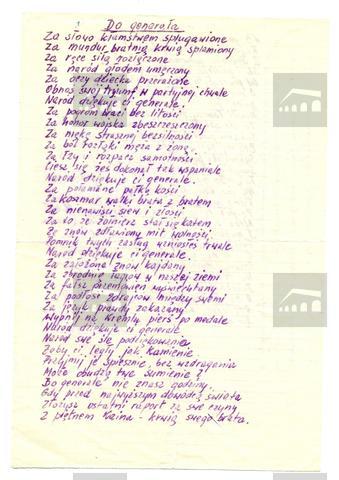 Do generała
Za słowo kłamstwem splugawione
Za mundur bratnią krwią splamiony
Za ręce siłą rozłączone
Za naród głodem umęczony
Za oczy dziecka przerażone
Obnoś swój tryumf w partyjnej chwale
Naród dziękuje ci generale.
Za pogrom braci bez litości
Za honor wojska zbeszczeszczony
Za mękę strasznej bezsilności
Za ból rozłąki męża z żoną
Za łzy i rozpacz samotności
Ciesz się żeś dokonał tak wspaniale
Naród dziękuje ci generale.
Za połamane pałką kości
Za koszmar walki brata z bratem
Za nienawiści siew i złości
Za to, że żołnierz stał się katem
Że znów zdławiony mit wolności
Pomnik swych zasług wzniosłeś trwale
Naród dziękuje ci generale.
Za założone znów kajdany
Za zbrodnię łagrów w naszej ziemi
Za fałsz przemówień wyświechtany
Za podłość zdrajców między swymi
Za język prawdy zakazany
Wypnij na Kremlu pierś po medale
Naród dziękuje ci generale
Naród swe śle podziękowania
Żeby ci legły jak kamienie
Przyjmij je śpiesznie, bez wzdragania
Może obudzą twe sumienie?
Bo generale nie znasz godziny
Gdy przed najwyższym dowódcą świata
Złożysz ostatni raport za swe czyny
Z piętnem Kaina - krwią swego brata.